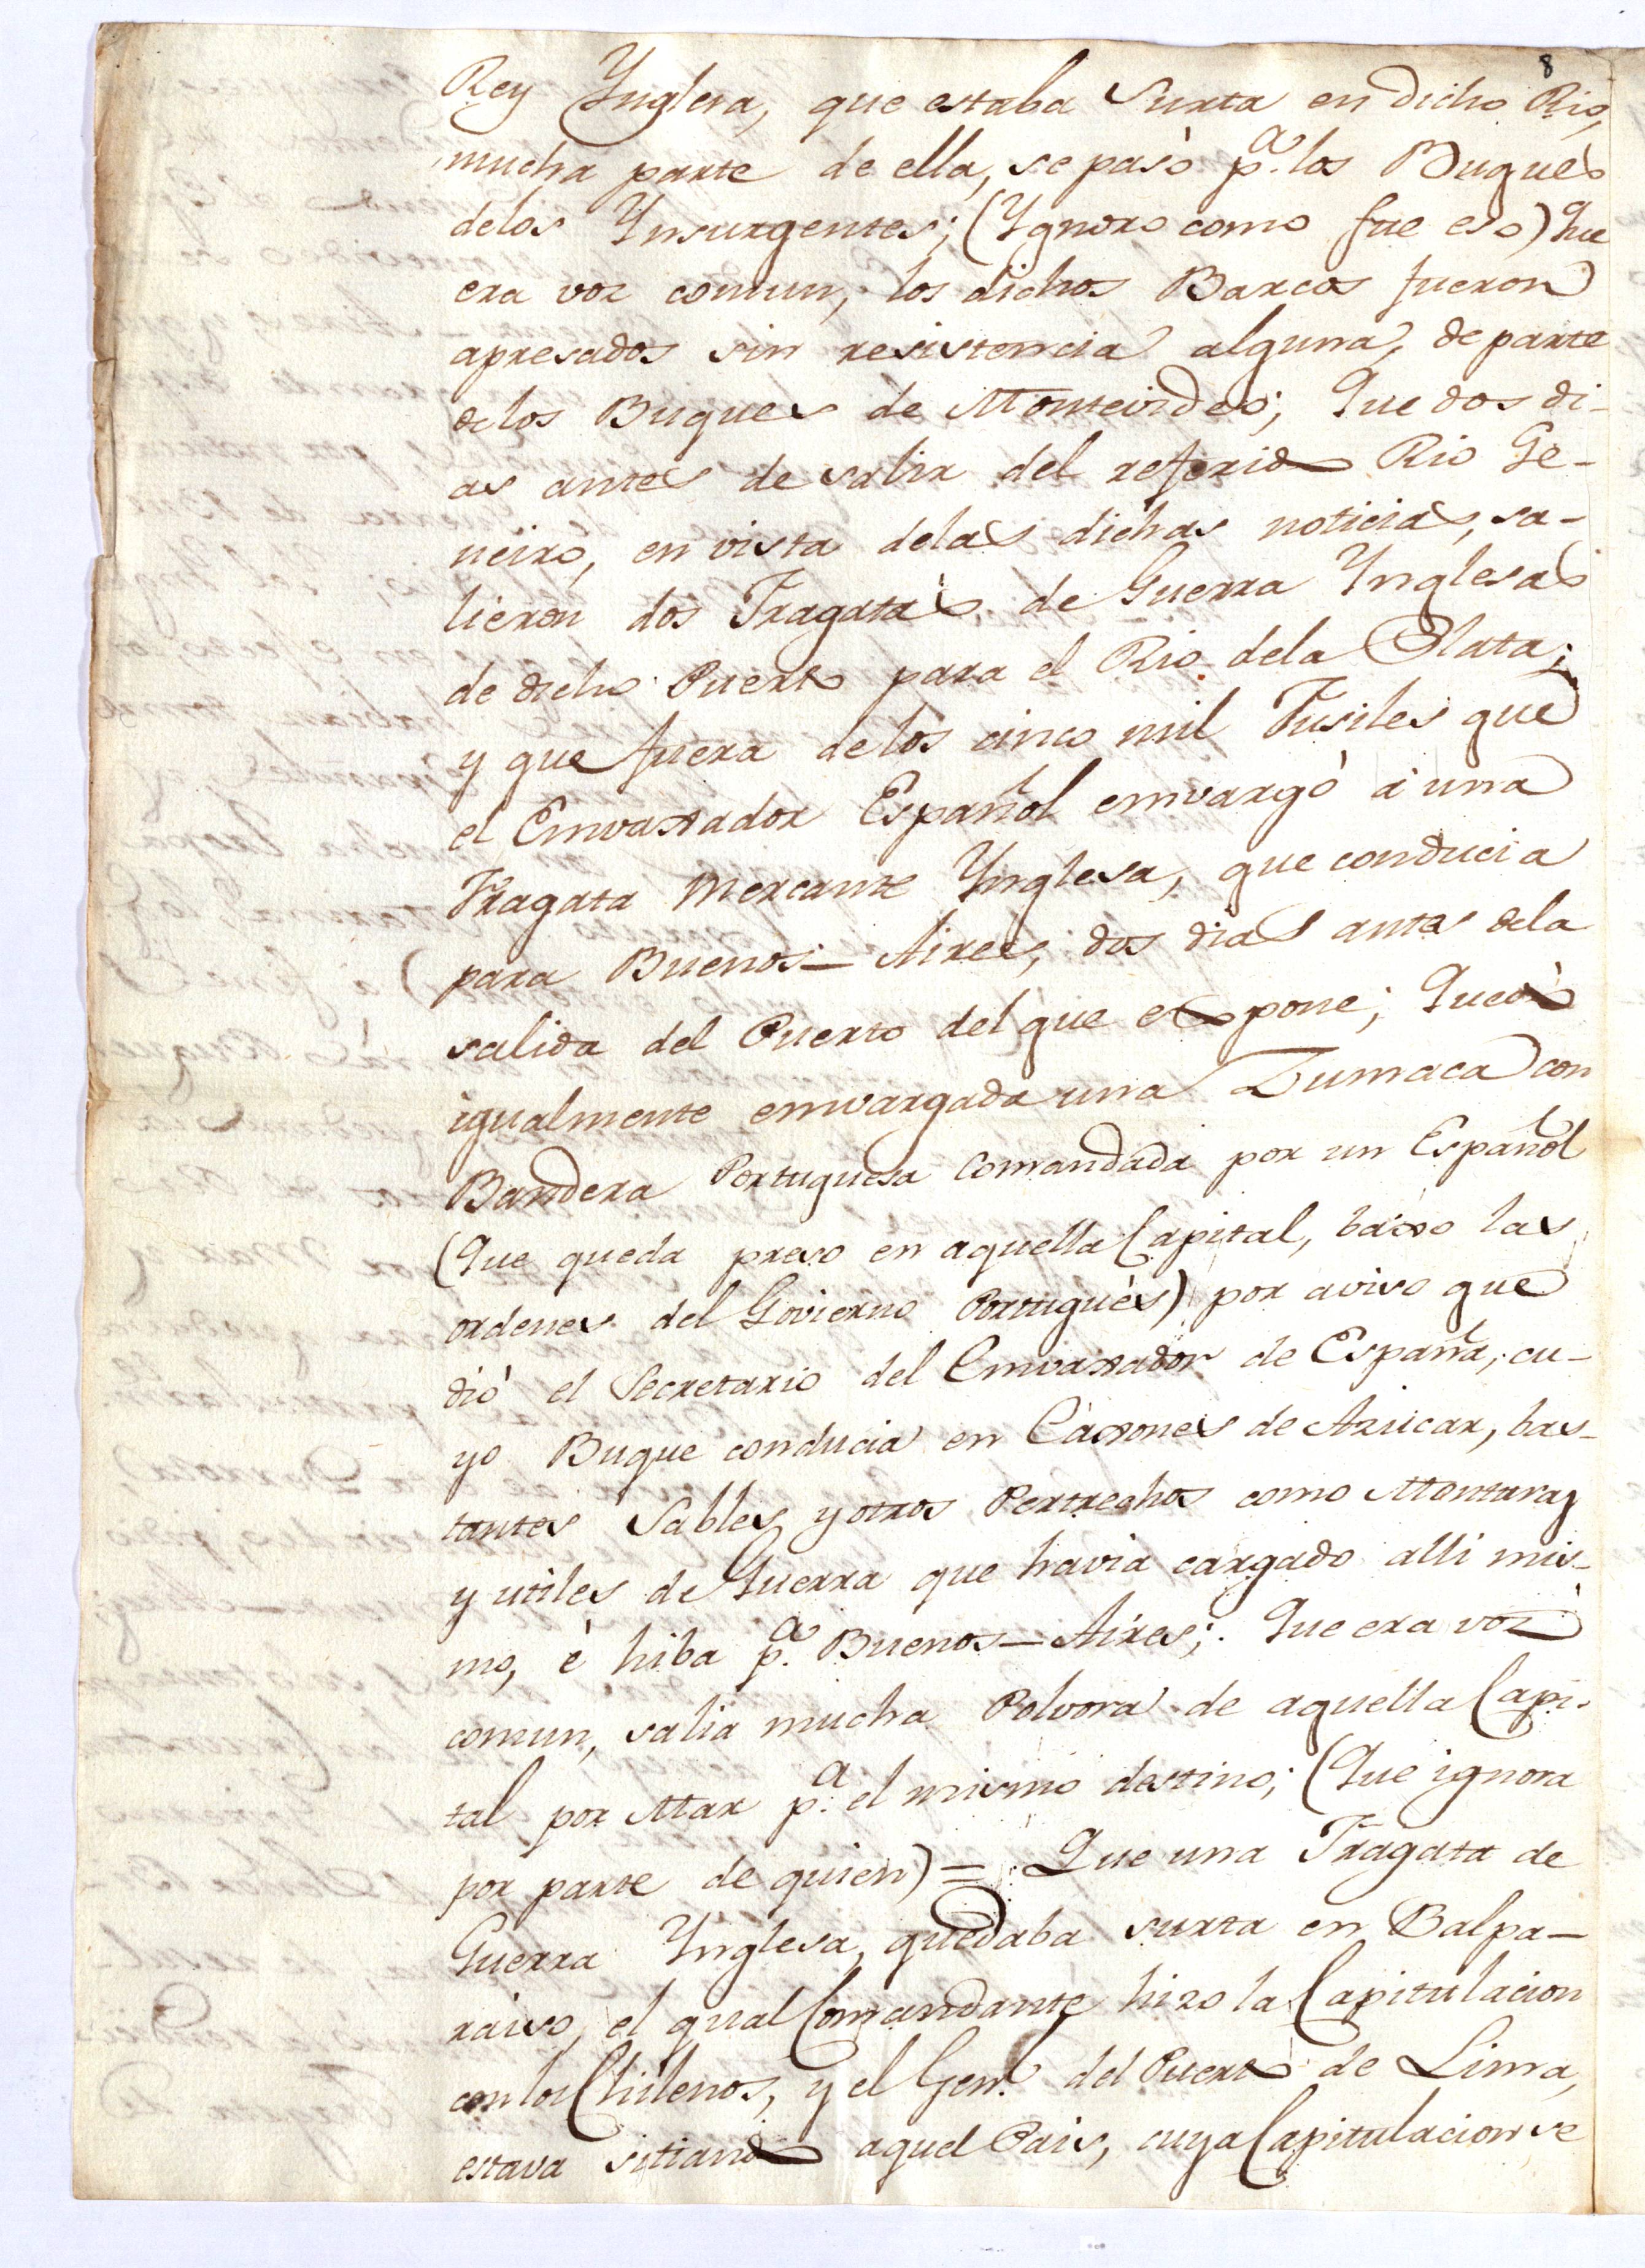 8
Rey Ynglesa, que estaba Surta en dicho Rio,
mucha parte de ella, se pasò p.a los Buques
delos Ynsurgentes; (Ygnoro como fue eso) Que
era voz comun, los dichos Barcos fueron
apresados sin resistencia alguna, de parte
delos Buques de Montevideo; Que dos di-
as antes de salir del referido Rio Ge-
neiro, en vista delas dichas noticias, sa-
lieron dos Fragatas de Guerra Ynglesas
de dicho Puerto para el Rio dela Plata;
y que fuera delos cinco mil Fusiles que
el Emvaxador Español emvargò à una
Fragata Mercante Ynglesa, que conducia
para Buenos-Aires, dos dias antes dela
salida del Puerto del que expone; Quedò
igualmente emvargada una Zumaca con
Bandera Portuguesa Comandada por un Español
(Que queda preso en aquella Capital, baxo las
ordenes del Govierno Portuguès) por aviso que
diò el Secretario del Emvaxador de España; cu-
yo Buque conducia en Caxones de Azucar, bas-
tantes Sables y otros Pertrechos como Monturas
y utiles de Guerra que havia cargado alli mis-
mo, è hiba p.a Buenos-Aires; Que era voz
comun, salia mucha Polvora de aquella Capi-
tal por Mar p.a el mismo destino; (Que ignora
por parte de quien) = Que una Fragata de
Guerra Ynglesa, quedaba surta en Balpa-
raiso, el qual Comandante hizo la Capitulacion
con los Chilenos, y el Gen.l del Puerto de Lima,
estava sitiando aquel Pais, cuya Capitulacion se